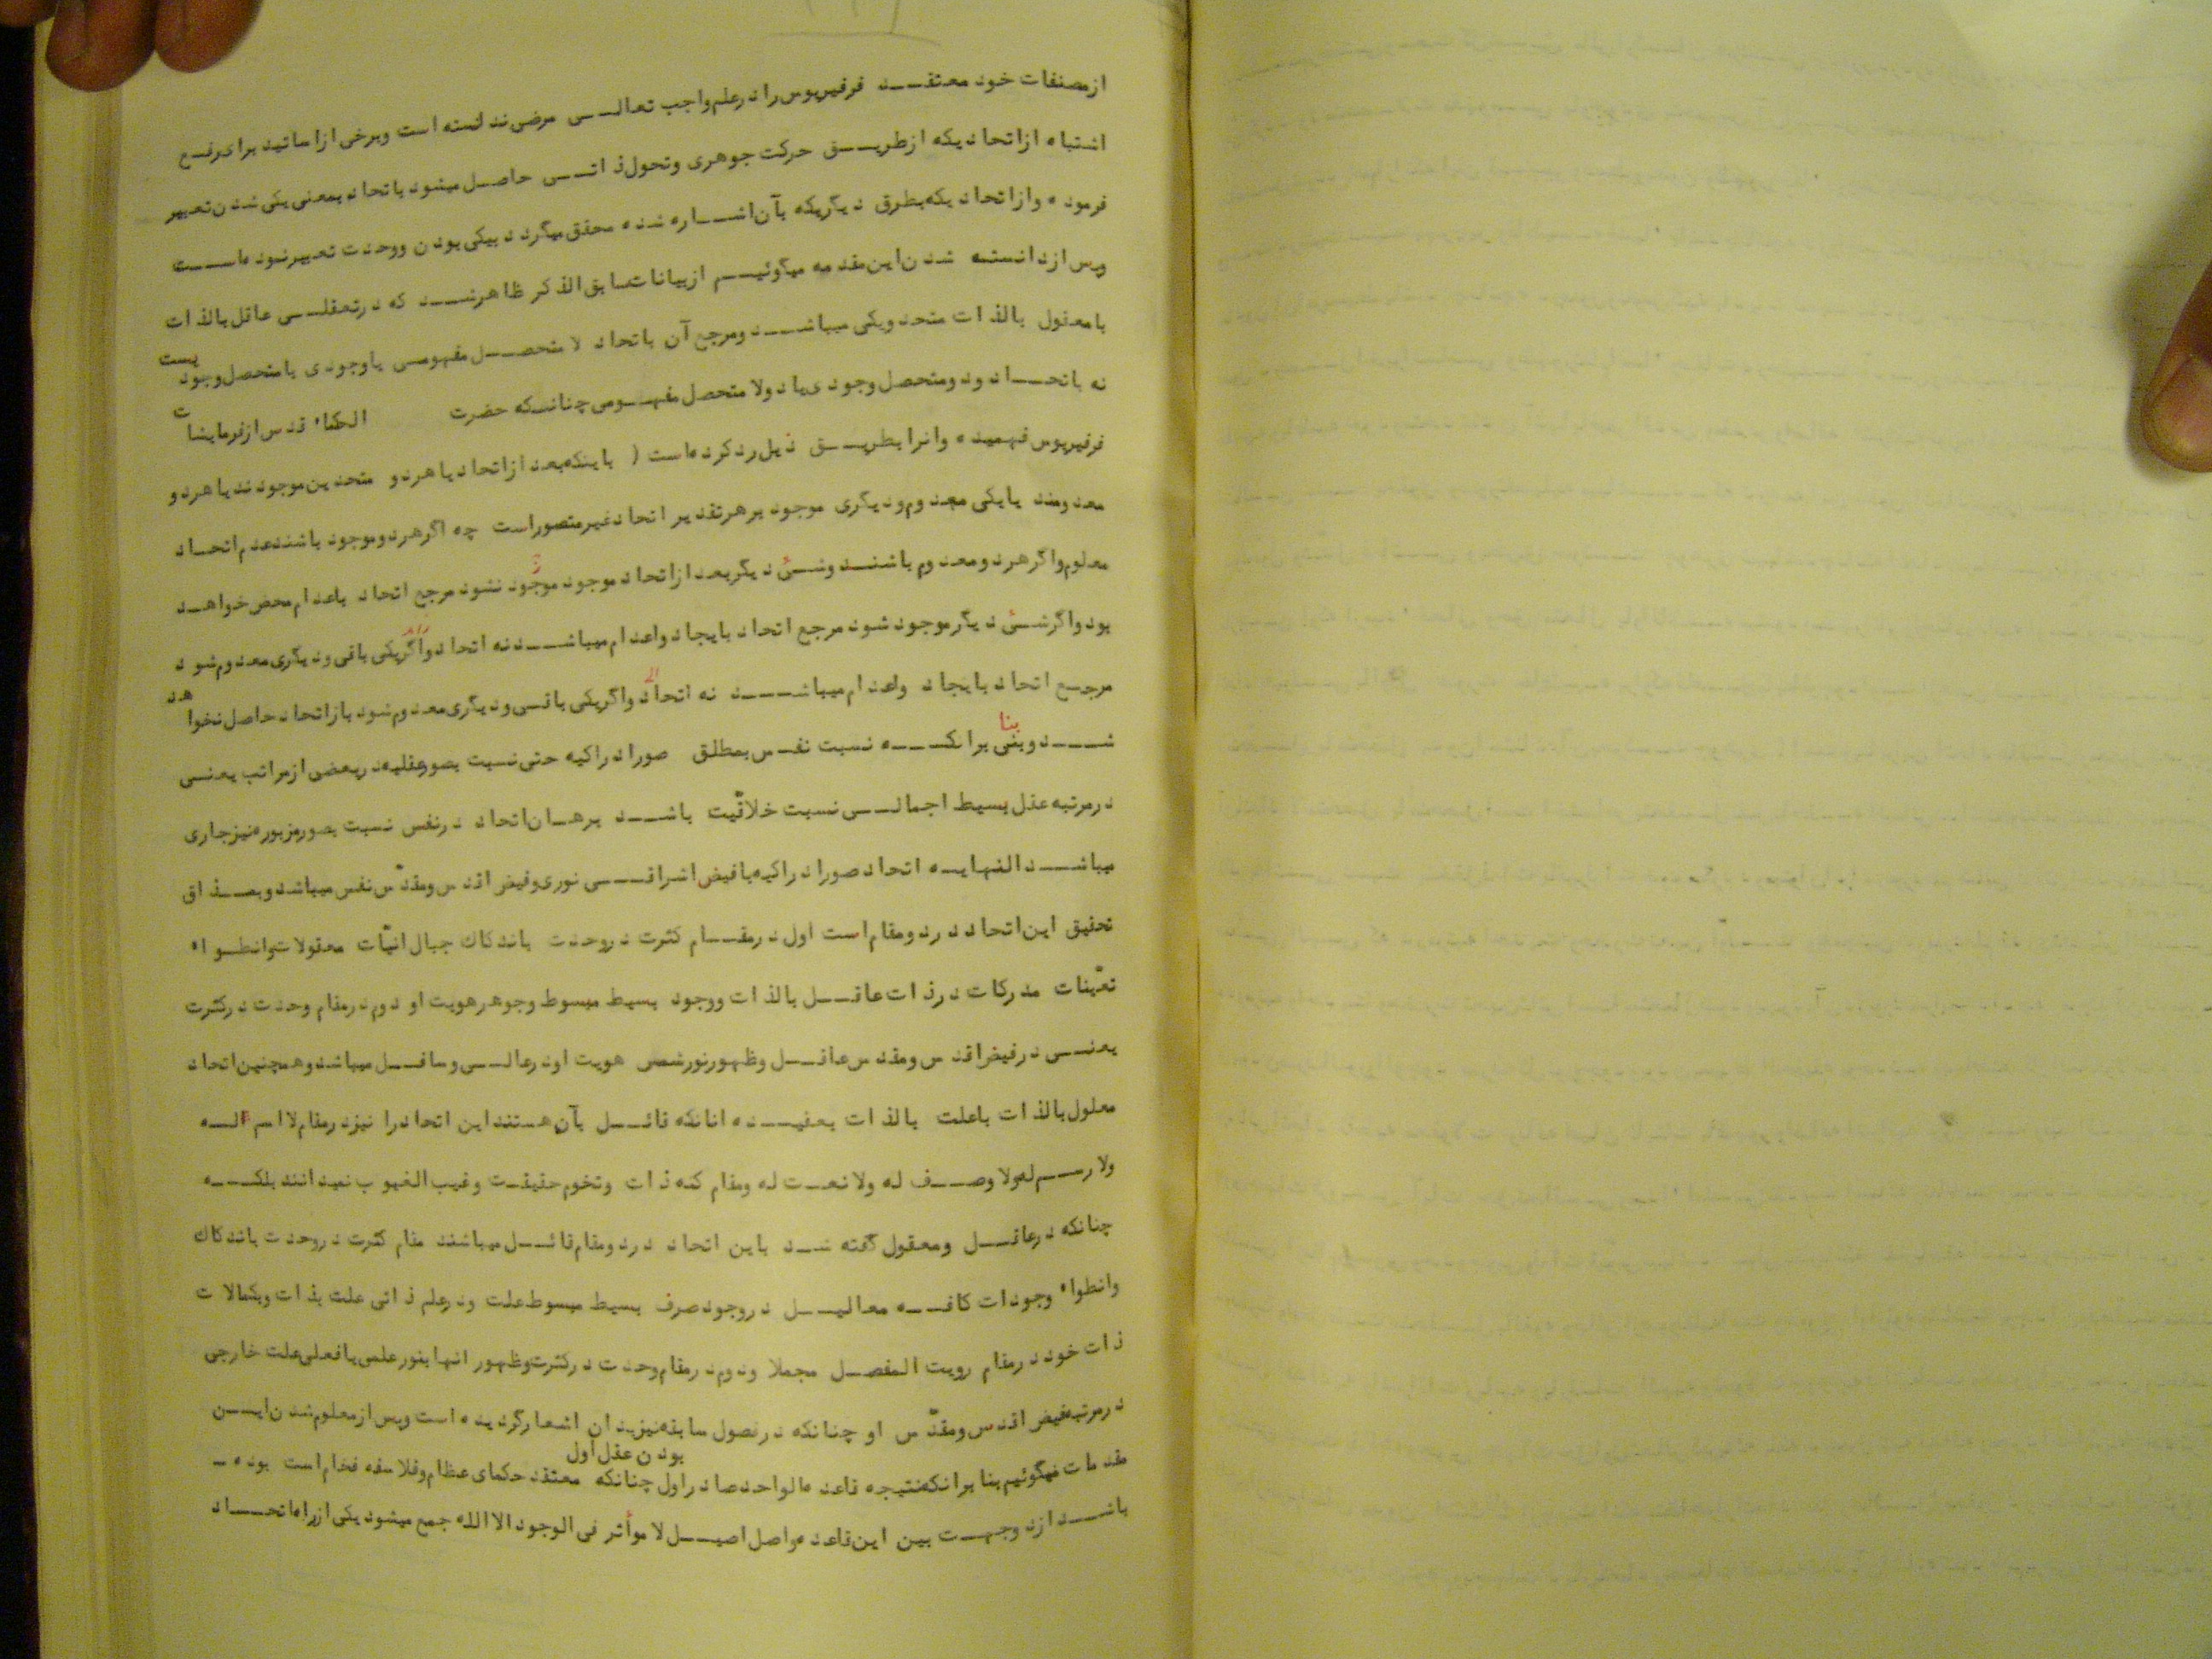 ازمصنفات خود معتقد فرفیریوس را درعلم واجب تعالی مرضی ندانسته است وبرخی ازاساتید برای رفع
اشتباه ازاتحادیکه ازطریق حرکت جوهری وتحول ذاتی حاصل میشود باتحاد بمعنی یکی شدن تعبیر
فرموده وازاتحادیکه بطرق دیگریکه بآن اشاره شده محقق میگردد بیکی بودن ووحدت تعبیرنموده است
وپس ازدانسته شدن این مقدمه میگوئیم ازبیانات سابق الذکر ظاهرشد که درتعقلی عاقل بالذات
بامعقول بالذات متحد ویکی میباشد ومرجع آن باتحاد لامتحصل مفهومی یاوجودی بامتحصل وجودیست
نه باتحاد دو متحصل وجودی یا دولا متحصل مفهومی چنانکه حضرت الحکماء قدس ازفرمایشات
فرفیریوس فهمیده وانرا بطریق ذیل رد کرده است ( باینکه بعد ازاتحاد یا هردو متحدین موجودند یا هردو
معدومند یایکی معدوم ودیگری موجود برهرتقدیر اتحاد غیرمتصوراست چه اگرهردوموجود باشند عدم اتحاد
معلوم واگرهردومعدوم باشند وشئ دیگربعد ازاتحاد موجود موجود نشود مرجع اتحاد باعدام محض خواهد
بود واگرشئ دیگرموجود شود مرجع اتحاد بایجاد واعدام میباشد نه اتحاد واگریکی باقی ودیگری معدوم شود
مرجع اتحاد بایجاد واعدام میباشد نه اتحاد واگریکی باقی ودیگری معدوم شود بازاتحاد حاصل نخواهد
شد وبنا برانکه نسبت نفس بمطلق صورادراکیه حتی نسبت بصورعقلیه دربعضی ازمراتب یعنی
درمرتبه عقل بسیط اجمالی نسبت خلاقیّت باشد برهان اتحاد درنفس نسبت بصورمزبوره نیزجاری
میباشد النهایه اتحاد صورادراکیه بافیض اشراقی نوری وفیض اقدس ومقدّس نفس میباشد وبمذاق
تحقیق این اتحاد دردومقام است اول درمقام کثرت دروحدت باندکاك جبال انیّات معقولات وانطواء
تعیّنات مدرکات درذات عاقل بالذات ووجود بسیط مبسوط وجوهرهویت او دوم درمقام وحدت درکثرت
یعنی درفیض اقدس ومقدس عاقل وظهورنورشمس هویت اودرعالی وسافل میباشد وهمچنین اتحاد
معلول بالذات باعلت بالذات بعقیده انانکه قائل بآن هستند این اتحاد را نیز درمقام لااسم له
ولارسم له ولاوصف له ولانعت له ومقام کنه ذات وتخوم حقیقت وغیب الغیوب نمیدانند بلکه
چنانکه درعاقل ومعقول گفته شد باین اتحاد دردومقام قائل میباشند مقام کثرت دروحدت باندکاك
وانطواء وجودات کافه معالیل دروجود صرف بسیط مبسوط علت ودرعلم ذاتی علت بذات وبکمالات
ذات خود درمقام رویت المفصل مجملا ودوم درمقام وحدت درکثرت وظهور انها بنورعلمی یافعلی علت خارجی
درمرتبه فیض اقدس ومقدّس او چنانکه درفصول سابقه نیزبدان اشعارگردیده است وپس ازمعلوم شدن این
مقدمات میگوئیم بنا برانکه نتیجه قاعده الواحد صادراول چنانکه معتقد حکمای عظام وفلاسفه فخام است بودن عقل اول بوده –
باشد ازدوجهت بین این قاعده واصل اصیل لا موأثر فی الوجود الا الله جمع میشود یکی ازراه اتحاد